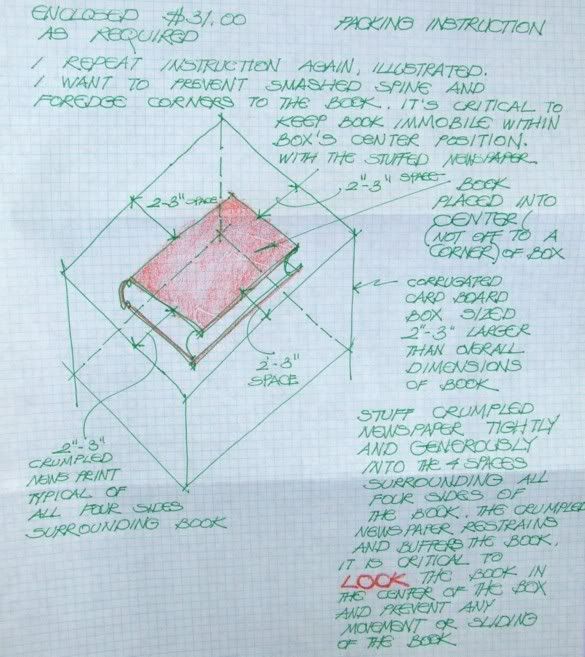 ENCLOSED $31.00
AS REQUIRED
PACKING INSTRUCTION
I REPEAT INSTRUCTION AGAIN, ILLUSTRATED.
I WANT TO PREVENT SMASHED SPINE AND
FOREDGE CORNERS TO THE BOOK. IT'S CRITICAL TO
KEEP BOOK IMMOBILE WITHIN
BOX'S CENTER POSITION.
WITH THE STUFFED NEWSPAPER.
2-3" SPACE
2-3" SPACE
BOOK
PLACED INTO
CENTER (
(NOT OFF TO A
CORNER) OF BOX
CORRUGATED
CARD BOARD
BOX SIZED
2"-3" LARGER
THAN OVERALL
DIMENSIONS
OF BOOK
2-3"
SPACE
2"-3"
CRUMPLED
NEWS PRINT
TYPICAL OF
ALL FOUR SIDES
SURROUNDING BOOK
STUFF CRUMPLED
NEWSPAPER TIGHTLY
AND GENEROUSLY
INTO THE 4 SPACES
SURROUNDING ALL
FOUR SIDES OF
THE BOOK. THE CRUMPLED
NEWSPAPER RESTRAINS
AND BUFFERS THE BOOK.
IT IS CRITICAL TO
LOCK THE BOOK IN
THE CENTER OF THE BOX
AND PREVENT ANY
MOVEMENT OR SLIDING
OF THE BOOK